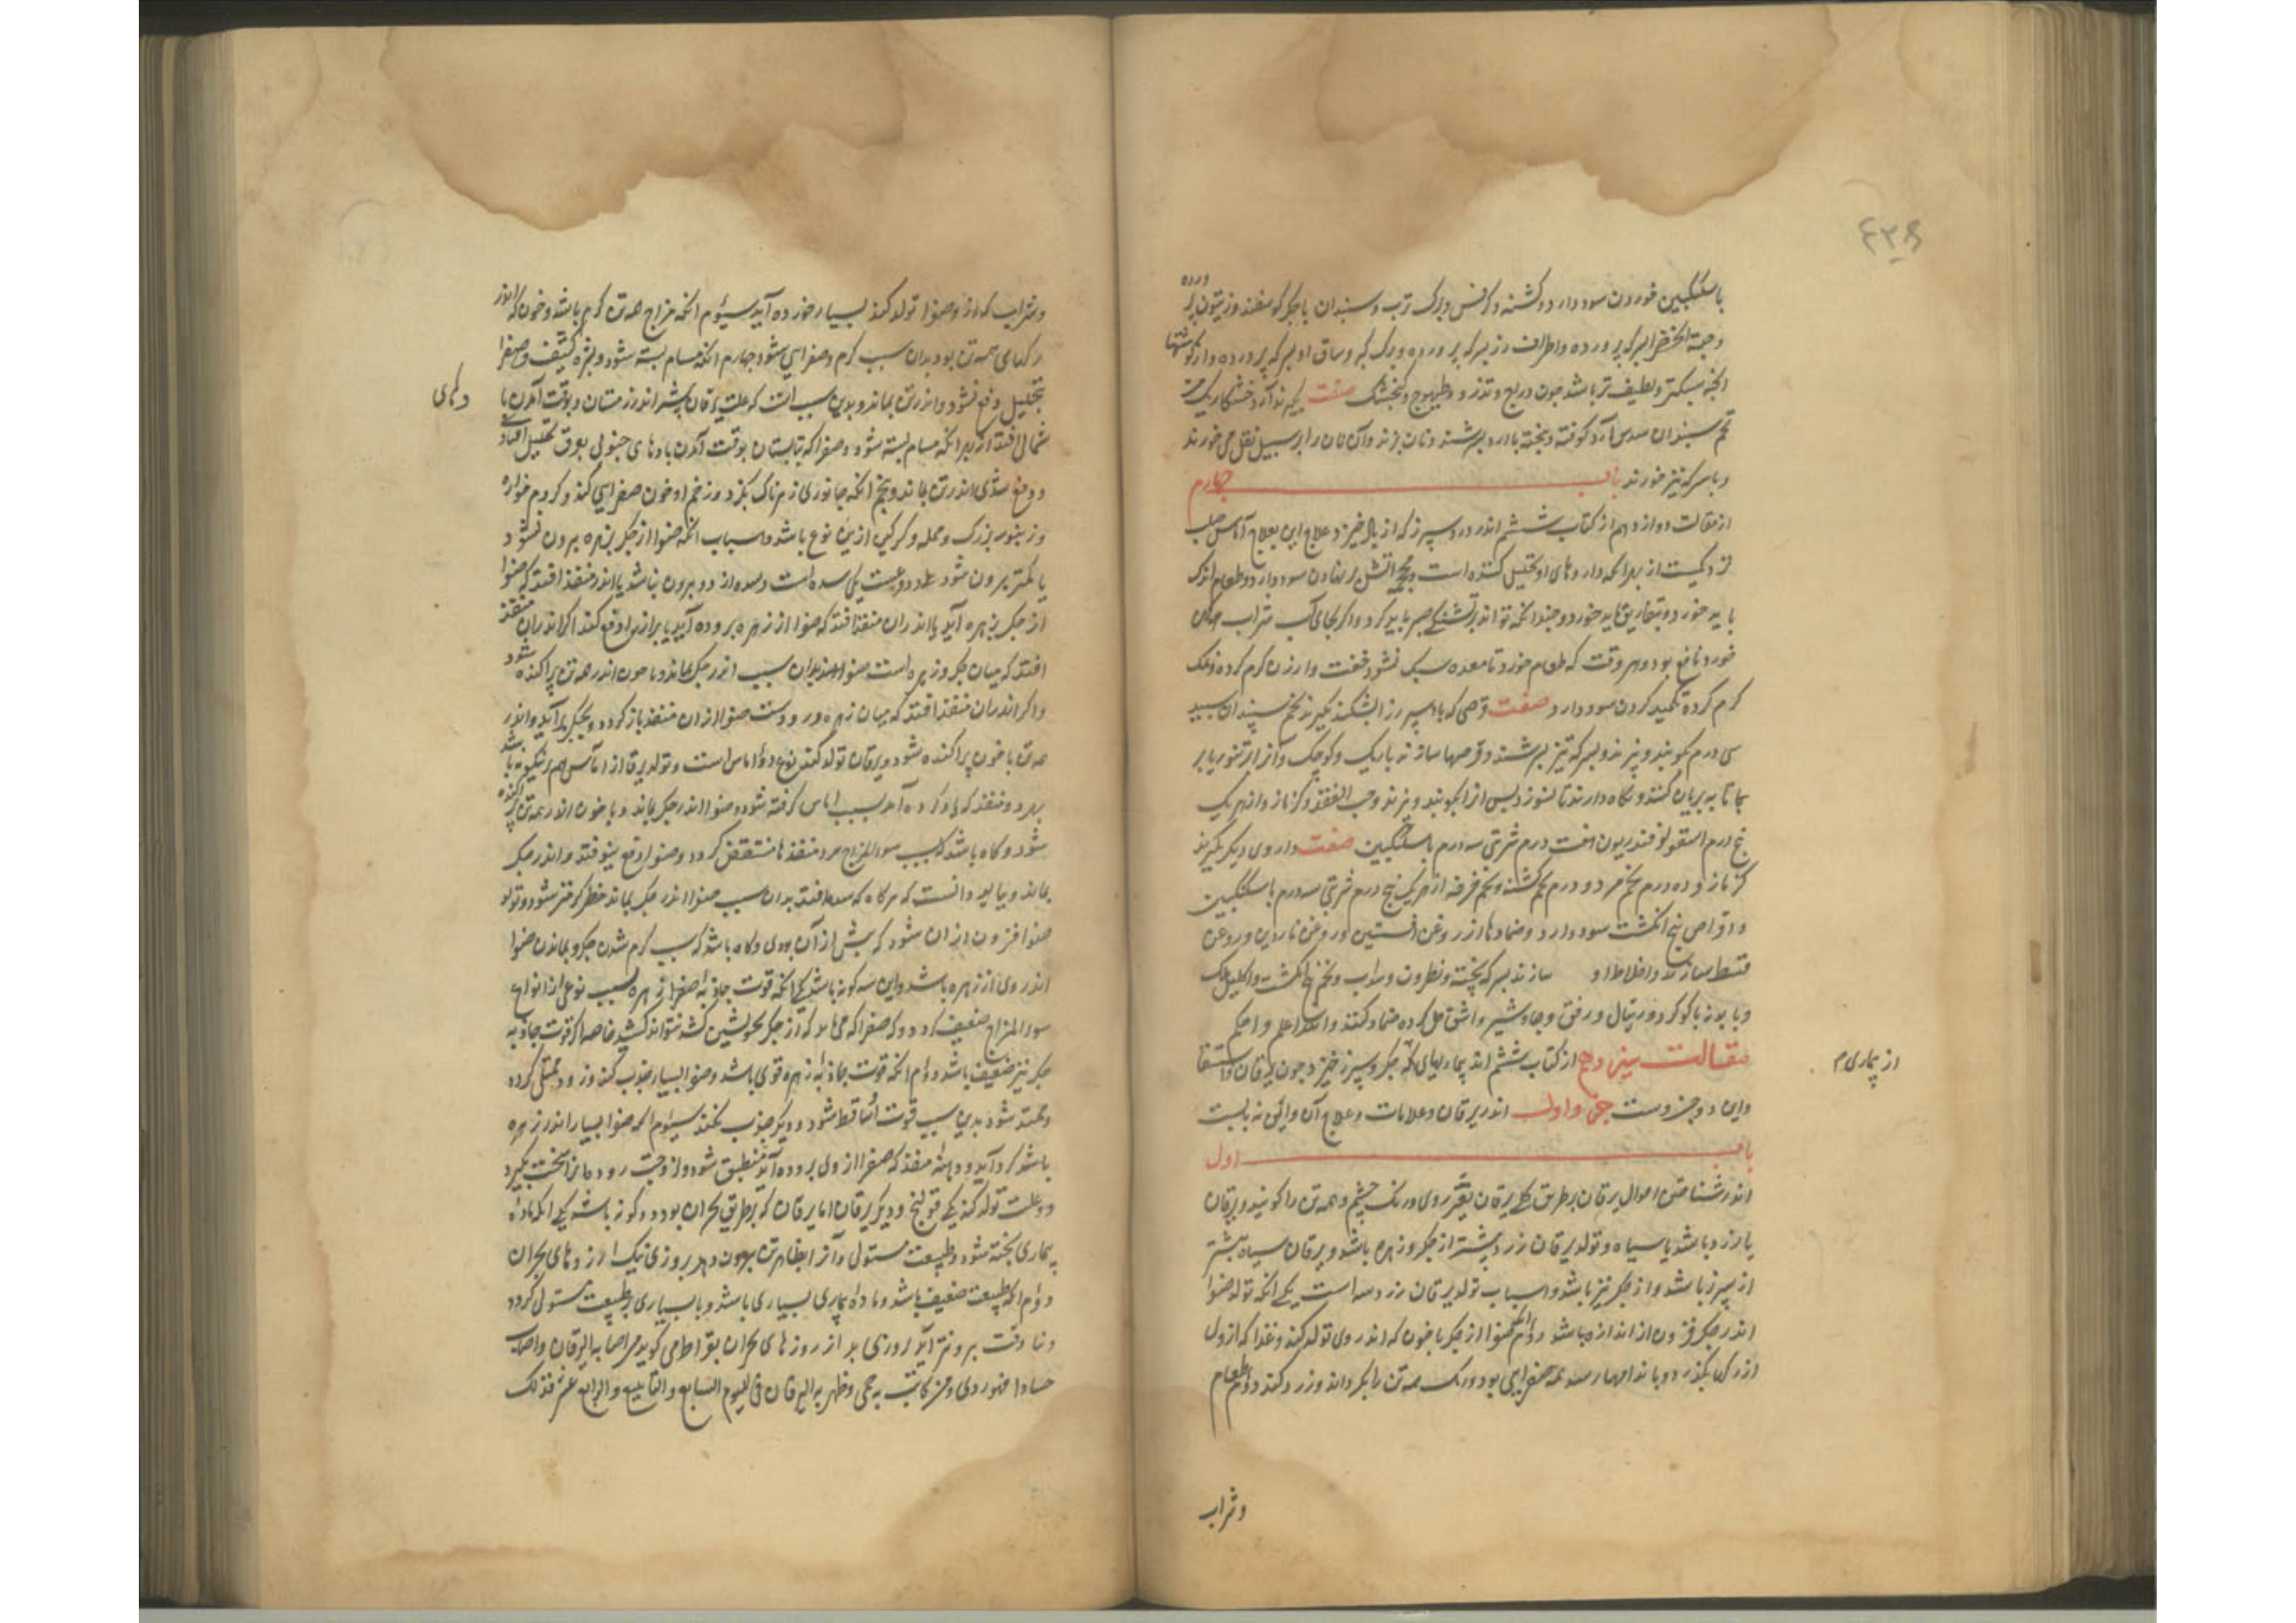 باسکنگبین خوردن سود دارد و کشنه و کرفس و برک ترب و سبندان با جکر کوسفند و زیتون پرورده
و حبة الخضرا بسرکه پرورده و اطراف رز بسرکه پرورده و برک کبر و ساق او بسرکه پرورده و از کوشتها
انجه سبکتر و لطیف تر باشد جون دراج و تذرو و طیهوج و کنجشک صفت بکیرند آرد خشکار یک
تخم سبندان سدس آرد کوفته و بیخته با ارد بسرشند و نان بزند و آن نان را بر سبیل نقل می خورند
و با سرکه نیز خورند باب جهارم
از مقالت دوازدهم از کتاب ششم اندر درد سپرز که از باد خیزد علاج این بعلاج آماس صلب
نزدیکست از بهر انکه داروهای او تحلیل کننده است و محجمه آتش بر نهادن سود دارد و طعام اندک
باید خورد و بتفاریق باید خورد و جندانکه تواند بر تشنکی صبر باید کرد و اکر بجای آب شراب
خورد نافع بود و هر وقت که طعام خورد تا معده سبک نشود نخفت و ارزن کرم کرده و نمک
کرم کرده تکمید کردن سود دارد صفت قرصی که باد سپرز را بشکند بکیرند تخم سپندان سپید
سی درم بکوبند و بپزند و بسرکه تیز بسرشند و قرصها سازند باریک و کوجک و آنرا در تنور یا بر
تابه بریان کنند و نکاه دارند تا نسوزد پس از ان بکوبند و بپزند و حب الفقد و کزمازو از هر یک
پنج درم اسقولوقندریون هفت درم شربتی سه درم با سکنکبین صفت داروی دیکر بکیرند
کزمازو ده درم تخم مرو دو درم تخم کشنه و تخم خرفه از هر یک پنج درم شربتی سه درم با سکنکبین
و اقراص پنج انکشت سود دارد و ضمادها از روغن افسنتین و روغن ناردین و روغن
قسط سازند و اخلاط او سازند بسرکه پخته و نطرون و سداب و تخم پنج انکشت و اکلیل الملک
و بابونه با کوکرد و ریتال و زفت و جاوشیر و اشق حل کرده ضماد کنند والله اعلم و احکم
مقالت سیزدهم از کتاب ششم اندر بیماریهای که از جکر و سپرز خیزد جون یرقان و استسقا
از بیماری م
و این دو جزوست جزو اول اندر یرقان و علامات و علاج آن و این نه بابست
باب اول
اندر شناختن احوال یرقان بر طریق کلی یرقان تغیر روی و رنک جشم و همه تن را کویند و یرقان
یا زرد باشد یا سیاه و تولد یرقان زرد بیشتر از جکر و زهره باشد و یرقان سیاه بیشتر
از سپرز باشد و از جکر نیز باشد و اسباب تولد یرقان زرد سه است یکی انکه تولد صفرا
اندر جکر فزون از اندازه باشد دوم انکه صفرا از جکر با خون که اندر وی تولد کند و غذا که از ول
از رک بکذرد همه صفرایی بود و رنک همه تن را بکرداند و زرد کند دوم طعام
و شراب
و شراب که ازو صفرا تولد کند بسیار خورده آید سیوم انکه مزاج همه تن کرم باشد و خون که اندر
رکهای همه تن بود بدان سبب کرم و صفرایی شود جهارم انکه مسام بسته شود و بشره کثیف و صفرا
بتحلیل دفع نشود و اندر تن بماند و بدین سبب است که علت یرقان بیشتر اندر زمستان و بوقت آمدن با
دهای
شمالی افتد از بهر انکه مسام بسته شود و صفرا که بتابستان بوقت آمدن بادهای جنوبی بعرق تحلیل افتادی
و دفع شدی اندر تن بماند و پنجم انکه جانوری زهرناک بکزد و زخم او خون صفرایی کند و کژدم خواره
و زنبور بزرک و کرکین ازین نوع باشد و اسباب انکه صفرا از جکر بزهره بیرون نشود
یا کمتر بیرون شود دو نوعست یکی سده است و سده از دو بیرون نباشد یا اندر منفذ افتد که صفرا
از جکر بزهره آید یا اندر ان منفذ افتد که صفرا از زهره بروده آید یا براز او دفع کند اکر اندر ان منفذ
افتد که میان جکر و زهره است صفرا بدان سبب اندر جکر بماند و با خون اندر همه تن پراکنده شود
و اکر اندر ان منفذ افتد که میان زهره و رودست صفرا از ان منفذ باز کردد و بجکر بر آید و اندر
همه تن با خون پراکنده شود و یرقان تولد کند نوع دوم اماس است و تولد یرقان از آماس هم برین کونه باشد
بهر دو منفذ که یاد کرده آمد بسبب اماس کرفته شود و صفرا اندر جکر بماند و با خون اندر همه تن پراکنده
شود و کاه باشد که بسبب سوء المزاج سرد منفذها منقبض کردد و صفرا دفع نیوفتد و اندر جکر
بماند و بباید دانست که هرکاه که سده افتد بدان سبب صفرا اندر جکر بماند جکر کرمتر شود و تولد
صفرا فزون از ان شود که پیش از آن بودی و کاه باشد که سبب کرم شدن جکر و بماندن صفرا
اندر وی از زهره باشد و این سه کونه باشد یکی انکه قوت جاذبه اصفرا از زهره بسبب نوعی از انواع
سوء المزاج ضعیف کردد و که صفرا که می باید که از جکر بخویشتن کشد نتواند کشید خاصه اکر قوت جاذبه
جکر نیز ضعیف باشد دوم انکه قوت جاذبه زهره قوی باشد و صفرا بسیار جذب کند و زود ممتلی کردد
و ممتد شود بدین سبب قوت او ساقط شود و دیکر جذب نکند سیوم انکه صفرا بسیار اندر زهره
باشد کرد آید و دهانه منفذ که صفرا از وی بروده آید منطبق شود و لزوجت رودها نرا سخت بکیرد
دو علت تولد کند یکی قولنج و دیکر یرقان اما یرقان که بر طریق بحران بود دو کونه باشد یکی انکه ماده
بیماری پخته شود و طبیعت مستولی و آنرا بظاهر تن بیرون دهد بروزی نیک از روزهای بحران
دوم انکه طبیعت ضعیف باشد و ماده بیماری بسیاری باشد و با بسیاری بر طبیعت مستولی کردد
و نا وقت بیرونتر آید بروزی بد از روزهای بحران بقراط می کوید من اصابه الیرقان و اصاب
و من کانت به حمی و ظهر به الیرقان فی الیوم السابع و التاسع و الرابع عشر فذلک